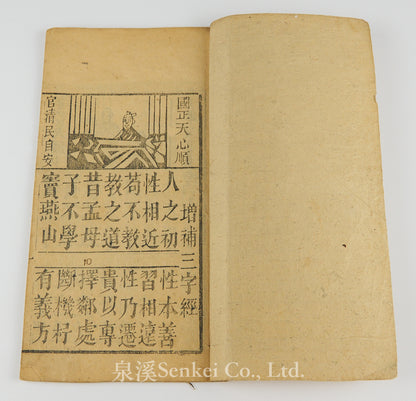 國正天心順
官清民自安
增補三字經
人之初
性本善
性相近
習相遠
苟不教
性乃遷
教之道
貴以專
昔孟母
擇鄰處
子不學
斷機杼
竇燕山
有義方
泉溪Senkei Co., Ltd.